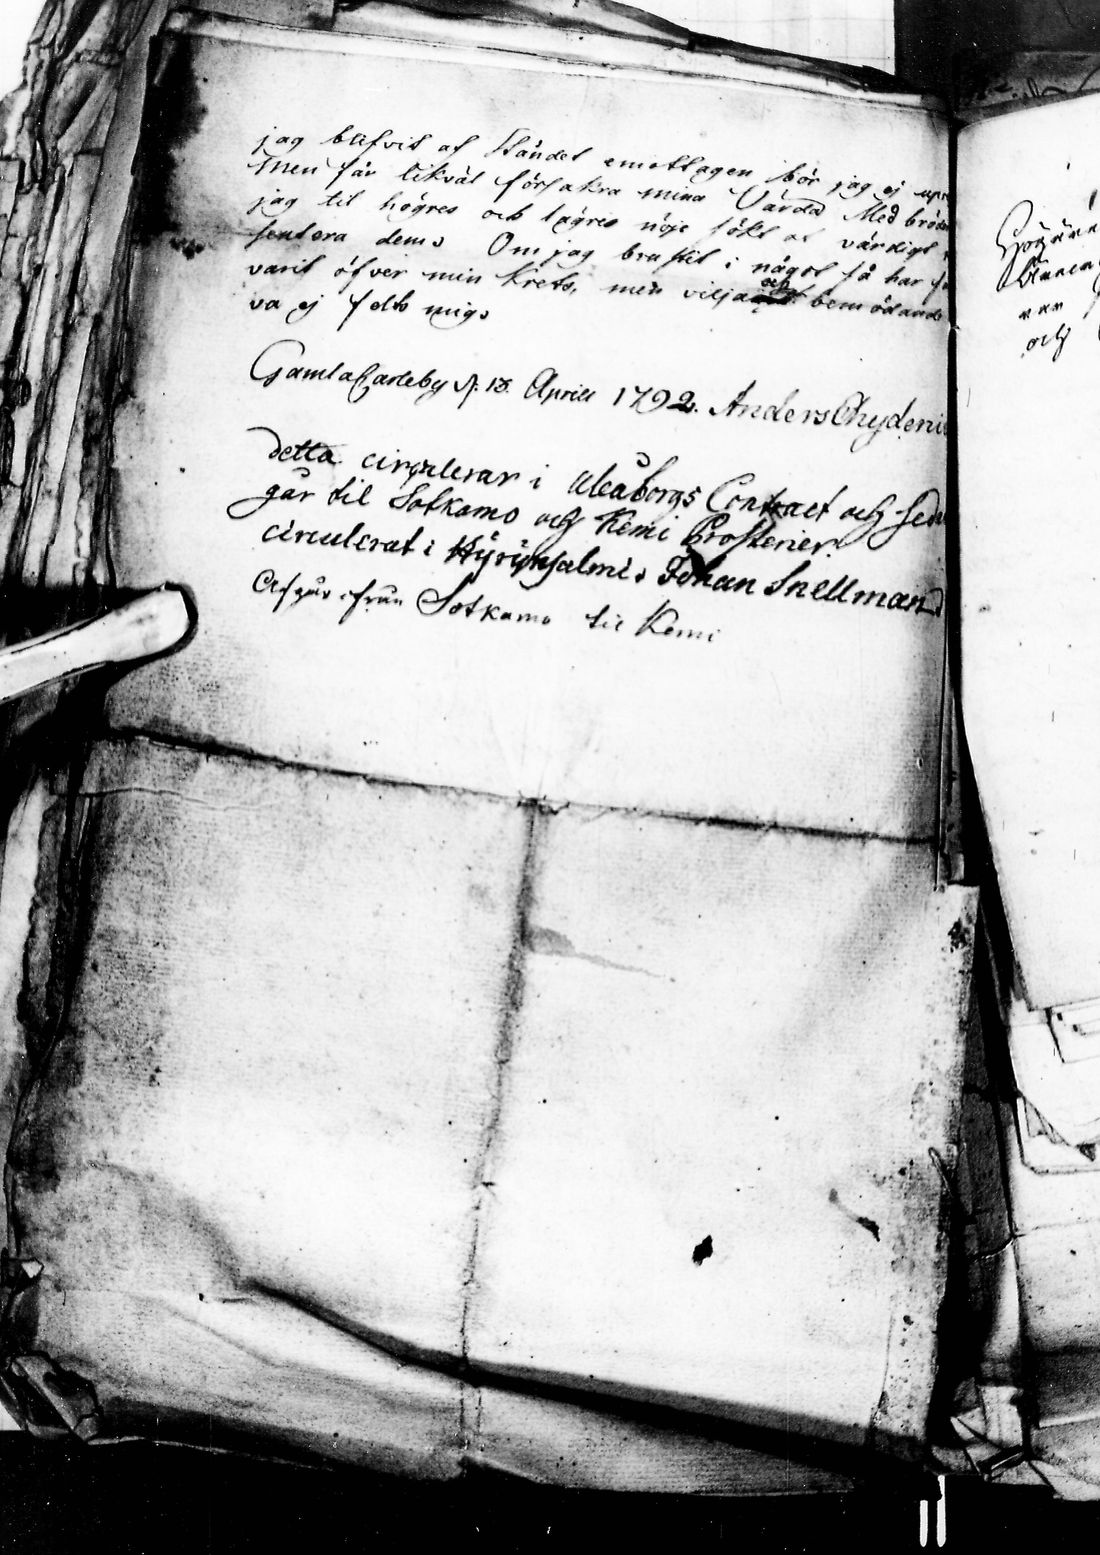 jag blifvit af Ståndet emottagen bör jag ej upre
Men får likväl försäkra mina Vårda Medbröder
jag til högres och lägres nöje sökt at värdigt
sentera dem. Om jag brustit i något så har
varit öfver min Krets, men vilja och bemödande
va ej felts mig.
Gamla Carleby d. 18. Aprill 1792. Anders Chydeni
Detta circulerar i Uleåborgs Contract och sedan
går til Sotkamo och Kemi Prosterier.
circulerat i Hyrynsalmi. Johan Snellman
Afgår från Sotkamo til Kemi
och